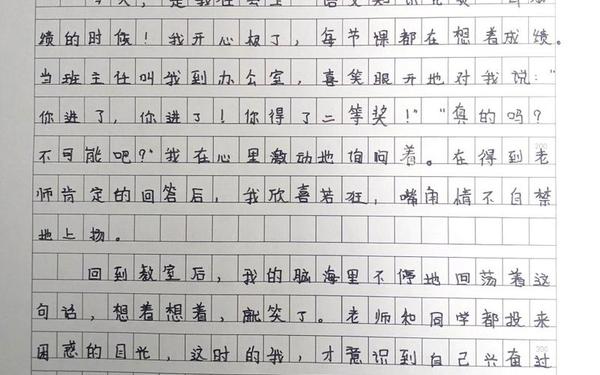 绩的时候！我开心极了，每节课都在想着成绩。
当班主任叫我到办公室，喜笑眼开地对我说：“
你进了，你进了！你得了二等奖！”“真的吗？
不可能吧？”我在心里激动地询问着。在得到老
师肯定的回答后，我欣喜若狂，嘴角情不自禁
地上扬。
回到教室后，我的脑海里不停地回荡着这
句话，想着想着，就笑了。老师和同学都投来
困惑的目光，这时的我，才意识到自己兴奋过